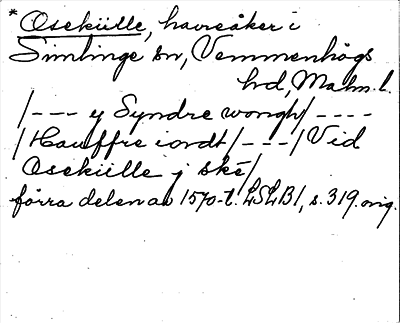 * Osekülle, havreåker i
Simlinge sn, Vemmenhögs
hd, Malm. l.
/--- y Syndre wongh/----
/Hauffre iordt/---/Vid
Osekülle j ske/
förra delen av 1570-t. LSLB1, s. 319. orig.